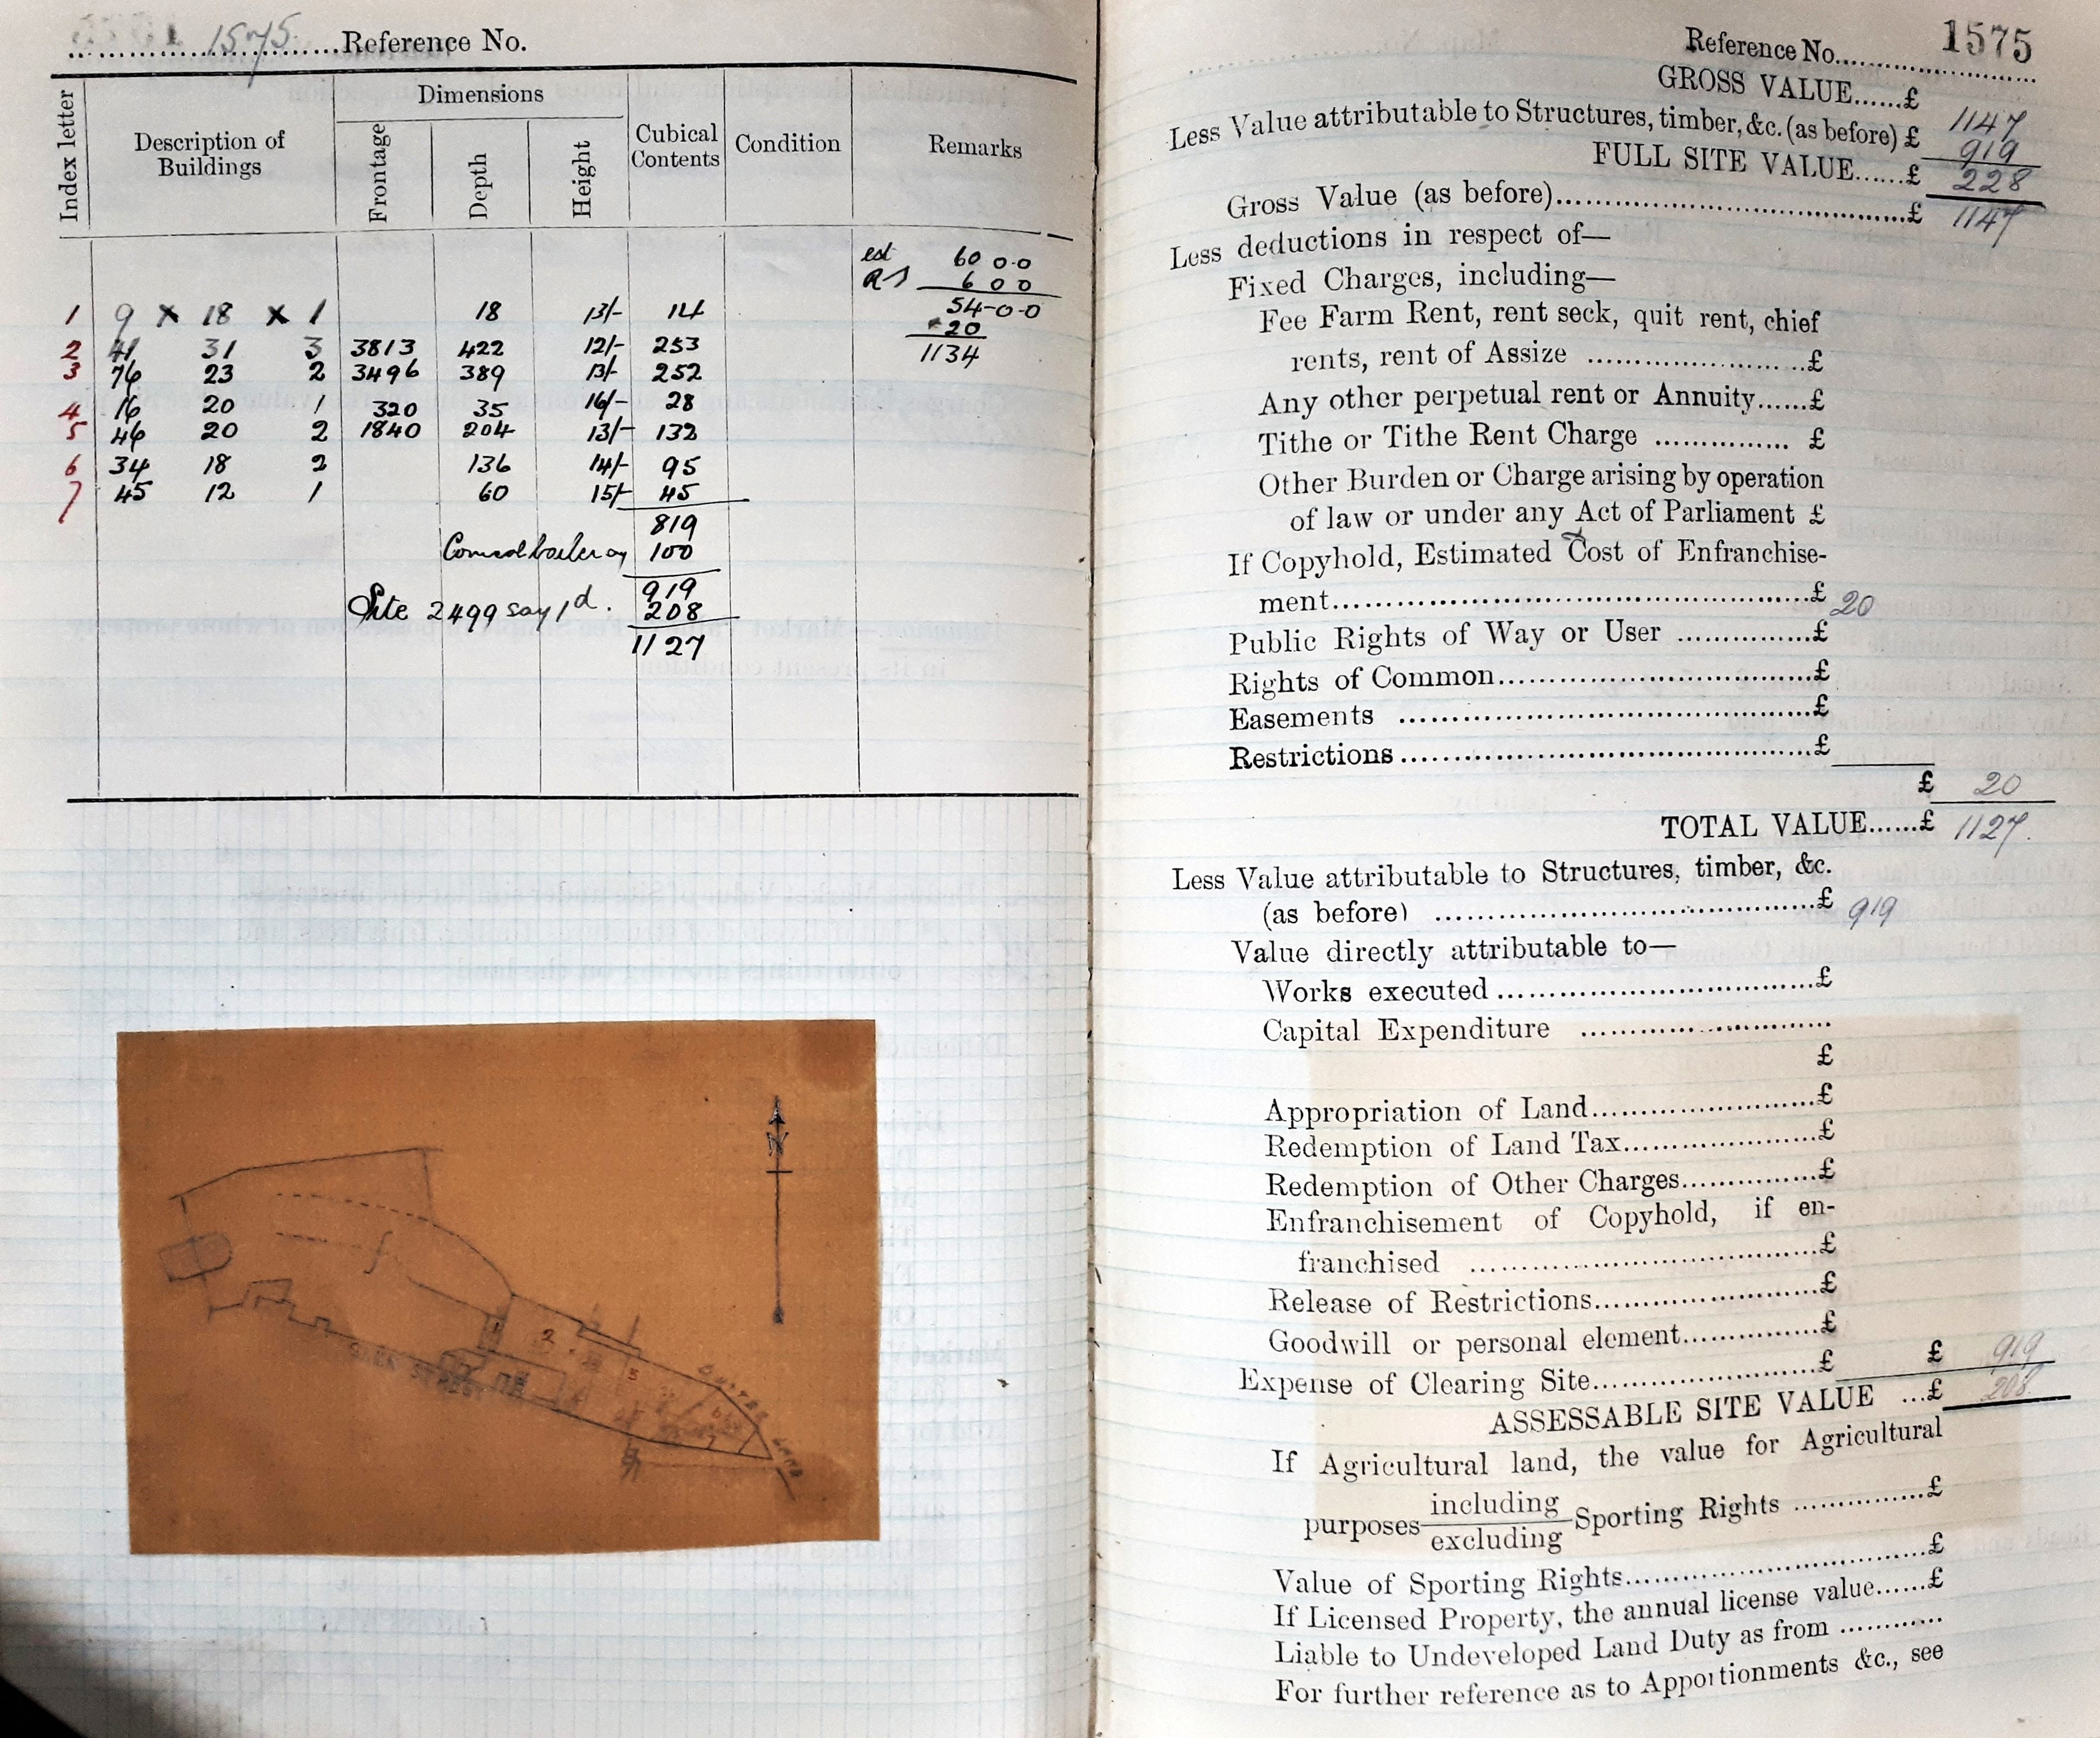 1575 Reference No.
Index letter
Description of Buildings
Dimensions
Frontage
Depth
Height
Cubical Contents
Condition
Remarks
est 60 0·0
6 0 0
54-0-0
20
1134
1 9 x 18 x 1 18 13/- 14
2 41 31 3 3813 422 12/- 253
3 76 23 2 3496 389 13/- 252
4 16 20 1 320 35 16/- 28
5 46 20 2 1840 204 13/- 132
6 34 18 2 136 14/- 95
7 45 12 1 60 15/- 45
819
100
919
Site 2499 say 1d. 208
1127
N
2
3
7
Reference No. 1575
GROSS VALUE......£ 1147
Less Value attributable to Structures, timber, &c. (as before) £ 919
FULL SITE VALUE......£ 228
Gross Value (as before)......£ 1147
Less deductions in respect of—
Fixed Charges, including—
Fee Farm Rent, rent seck, quit rent, chief
rents, rent of Assize ......£
Any other perpetual rent or Annuity......£
Tithe or Tithe Rent Charge ...... £
Other Burden or Charge arising by operation
of law or under any Act of Parliament £
If Copyhold, Estimated Cost of Enfranchise-
ment......£ 20
Public Rights of Way or User ......£
Rights of Common......£
Easements ......£
Restrictions ......£
£ 20
TOTAL VALUE......£ 1127.
Less Value attributable to Structures, timber, &c.
(as before) ......£ 919
Value directly attributable to—
Works executed ......£
Capital Expenditure ......
£
Appropriation of Land......£
Redemption of Land Tax......£
Redemption of Other Charges......£
Enfranchisement of Copyhold, if en-
franchised ......£
Release of Restrictions......£
Goodwill or personal element......£
Expense of Clearing Site......£ £ 919
ASSESSABLE SITE VALUE ...£ 208
If Agricultural land, the value for Agricultural
purposes including
excluding Sporting Rights ......£
Value of Sporting Rights......£
If Licensed Property, the annual license value......£
Liable to Undeveloped Land Duty as from ......
For further reference as to Apportionments &c., see